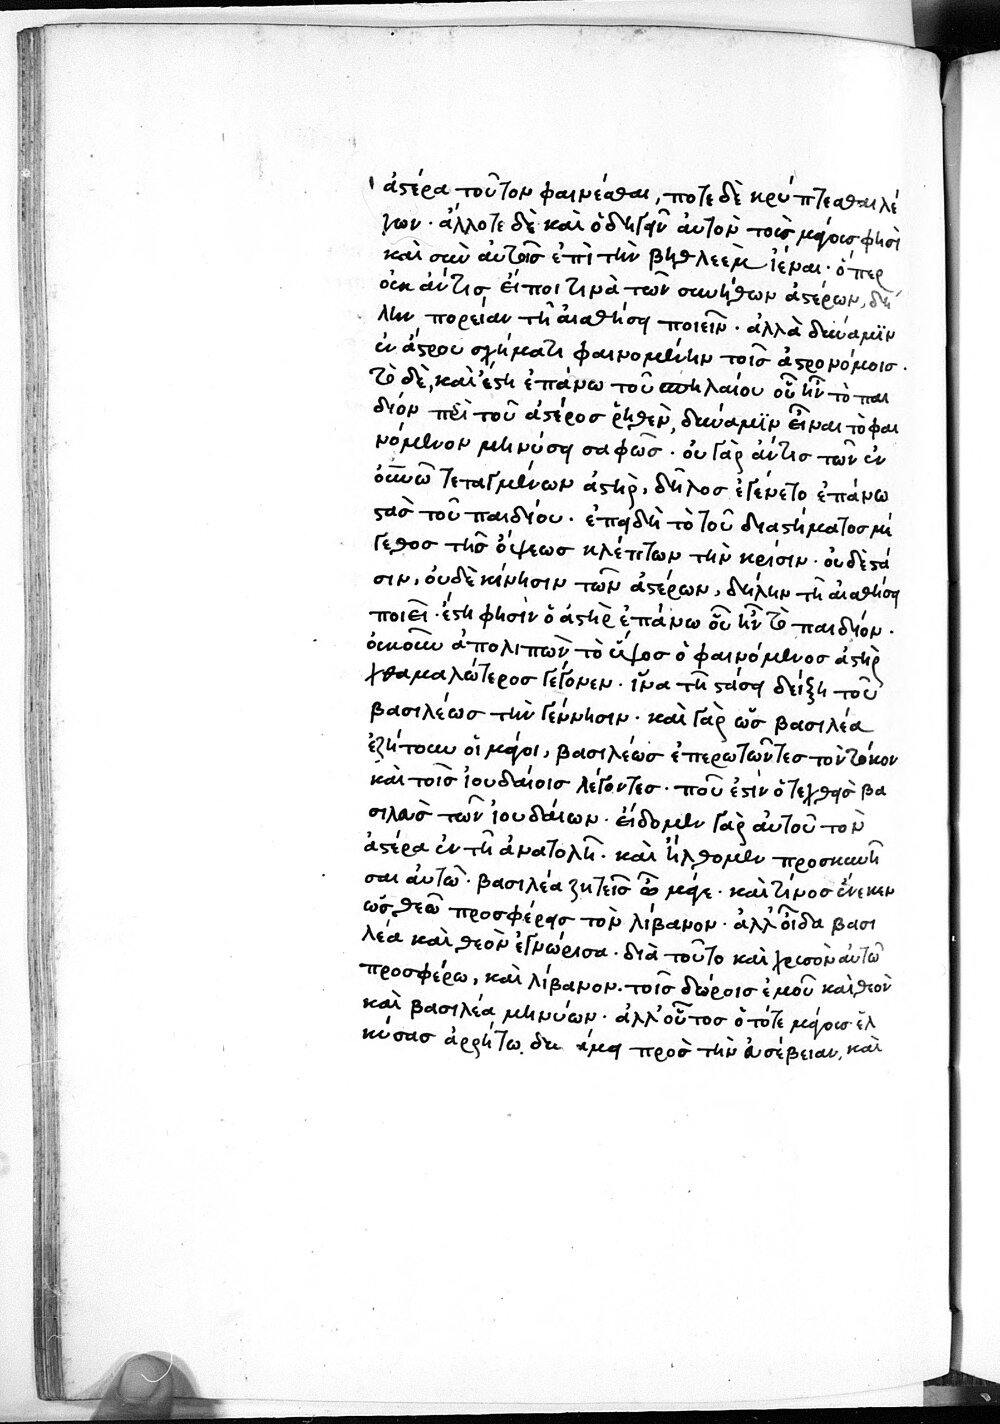 ἀστέρα τοῦτον φαινέσθαι, ποτὲ δὲ κρύπτεσθαι λέ
γων · ἄλλοτε δὲ καὶ ὁδηγεῖν αὐτὸν τοῖς μάγοις φησὶ
καὶ σὺν αὐτοῖς ἐπὶ τὴν βηθλεὲμ ἰέναι · ὅπερ
οὐκ ἄν τις εἴποι τινὰ τῶν συνήθων ἀστέρων, δή
λην πορείαν τῇ αἰσθήσει ποιεῖν · ἀλλὰ δύναμϊν
ἐν ἄστρου σχήματι φαινομένην τοῖς ἀστρονόμοις ·
τὸ δὲ, καὶ ἔστη ἐπάνω τοῦ σπηλαίου οὗ ἦν τὸ παι
δίον περὶ τοῦ ἀστέρος ῥηθὲν, δύναμϊν εἶναι τὸ φαι
νόμενον μηνύσει σαφῶς · οὐ γὰρ ἄν τις τῶν ἐν
οὐνῶ τεταγμένων ἀστὴρ, δῆλος ἐγένετο ἐπάνω
στὰς τοῦ παιδίου · ἐπειδὴ τὸ τοῦ διαστήματος μέ
γεθος τῆς ὄψεως κλέπτων τὴν κρίσιν · οὐδὲ στά
σιν, οὐδὲ κίνησιν τῶν ἀστέρων, δήλην τῇ αἰσθήσει
ποιεῖ · ἔστη φησὶν ὁ ἀστὴρ ἐπάνω οὗ ἦν τὸ παιδίον ·
οὐκοῦν ἀπολιπὼν τὸ ὕψος ὁ φαινόμενος ἀστὴρ
χθαμαλώτερος γέγονεν · ἵνα τῇ στάσει δείξη τοῦ
βασιλέως τὴν γέννησιν · καὶ γὰρ ὡς βασιλέα
ἐζήτουν οἱ μάγοι, βασιλέως ἐπερωτῶντες τὸν τόκον
καὶ τοῖς ἰουδαίοις λέγοντες · ποῦ ἐστὶν ὁ τεχθεὶς βα
σιλεὺς τῶν ἰουδαίων · εἴδομεν γὰρ αὐτοῦ τὸν
ἀστέρα ἐν τῇ ἀνατολῇ · καὶ ἤλθομεν προσκυνῆ
σαι αὐτῶ · βασιλέα ζητεῖς ὦ μάγε · καὶ τίνος ἕνεκεν
ὡς θεῶ προσφέρεις τὸν λίβανον · ἀλλ᾽ οἶδα βασι
λέα καὶ θεὸν ἐγνώρισα · διὰ τοῦτο καὶ χρυσὸν αὐτῶ
προσφέρω, καὶ λίβανον · τοῖς δώροις ἐμοῦ καὶ θεὸν
καὶ βασιλέα μηνύων · ἀλλ᾽ οὗτος ὁ τότε μάγους ἑλ
κύσας πρὸς τὴν εὐσέβειαν, καὶ